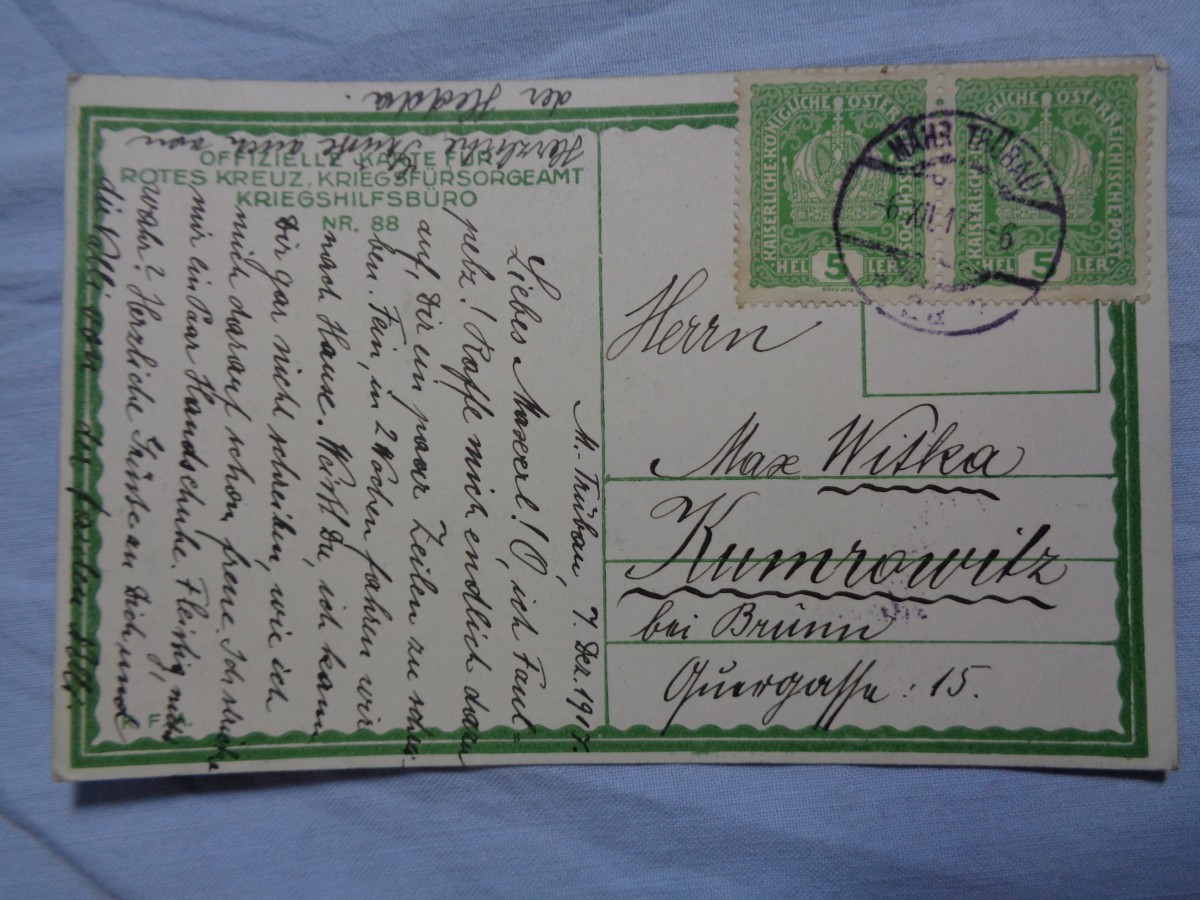 OFFIZIELLE KARTE FÜR
ROTES KREUZ, KRIEGSFÜRSORGEAMT
KRIEGSHILFSBÜRO
NR. 88
KAISERLICHE KÖNIGLICHE ÖSTERREICHISCHE POST
5
HELLER
KAISERLICHE KÖNIGLICHE ÖSTERREICHISCHE POST
5
HELLER
MÄHR. TRÜBAU
-6.XII.1 -6
Herrn
Max Witka
Kumrowitz
bei Brünn
Quergasse: 15.
M. Trübau, 7. Dez. 1917.
Liebes Maxerl! O, ich Faul=
pelz! Raffe mich endlich dazu
auf, Dir ein paar Zeilen zu schrei-
ben. Fein, in 2 Wochen fahren wir
nach Hause. Weißt Du, ich kann
Dir gar nicht schreiben, wie ich
mich darauf schon freue. Ich stricke
mir ein Paar Handschuhe. Fleißig, nicht
wahr? Herzliche Grüße an Dich und
die von der
Herzliche Grüße auch von
der Hedda.